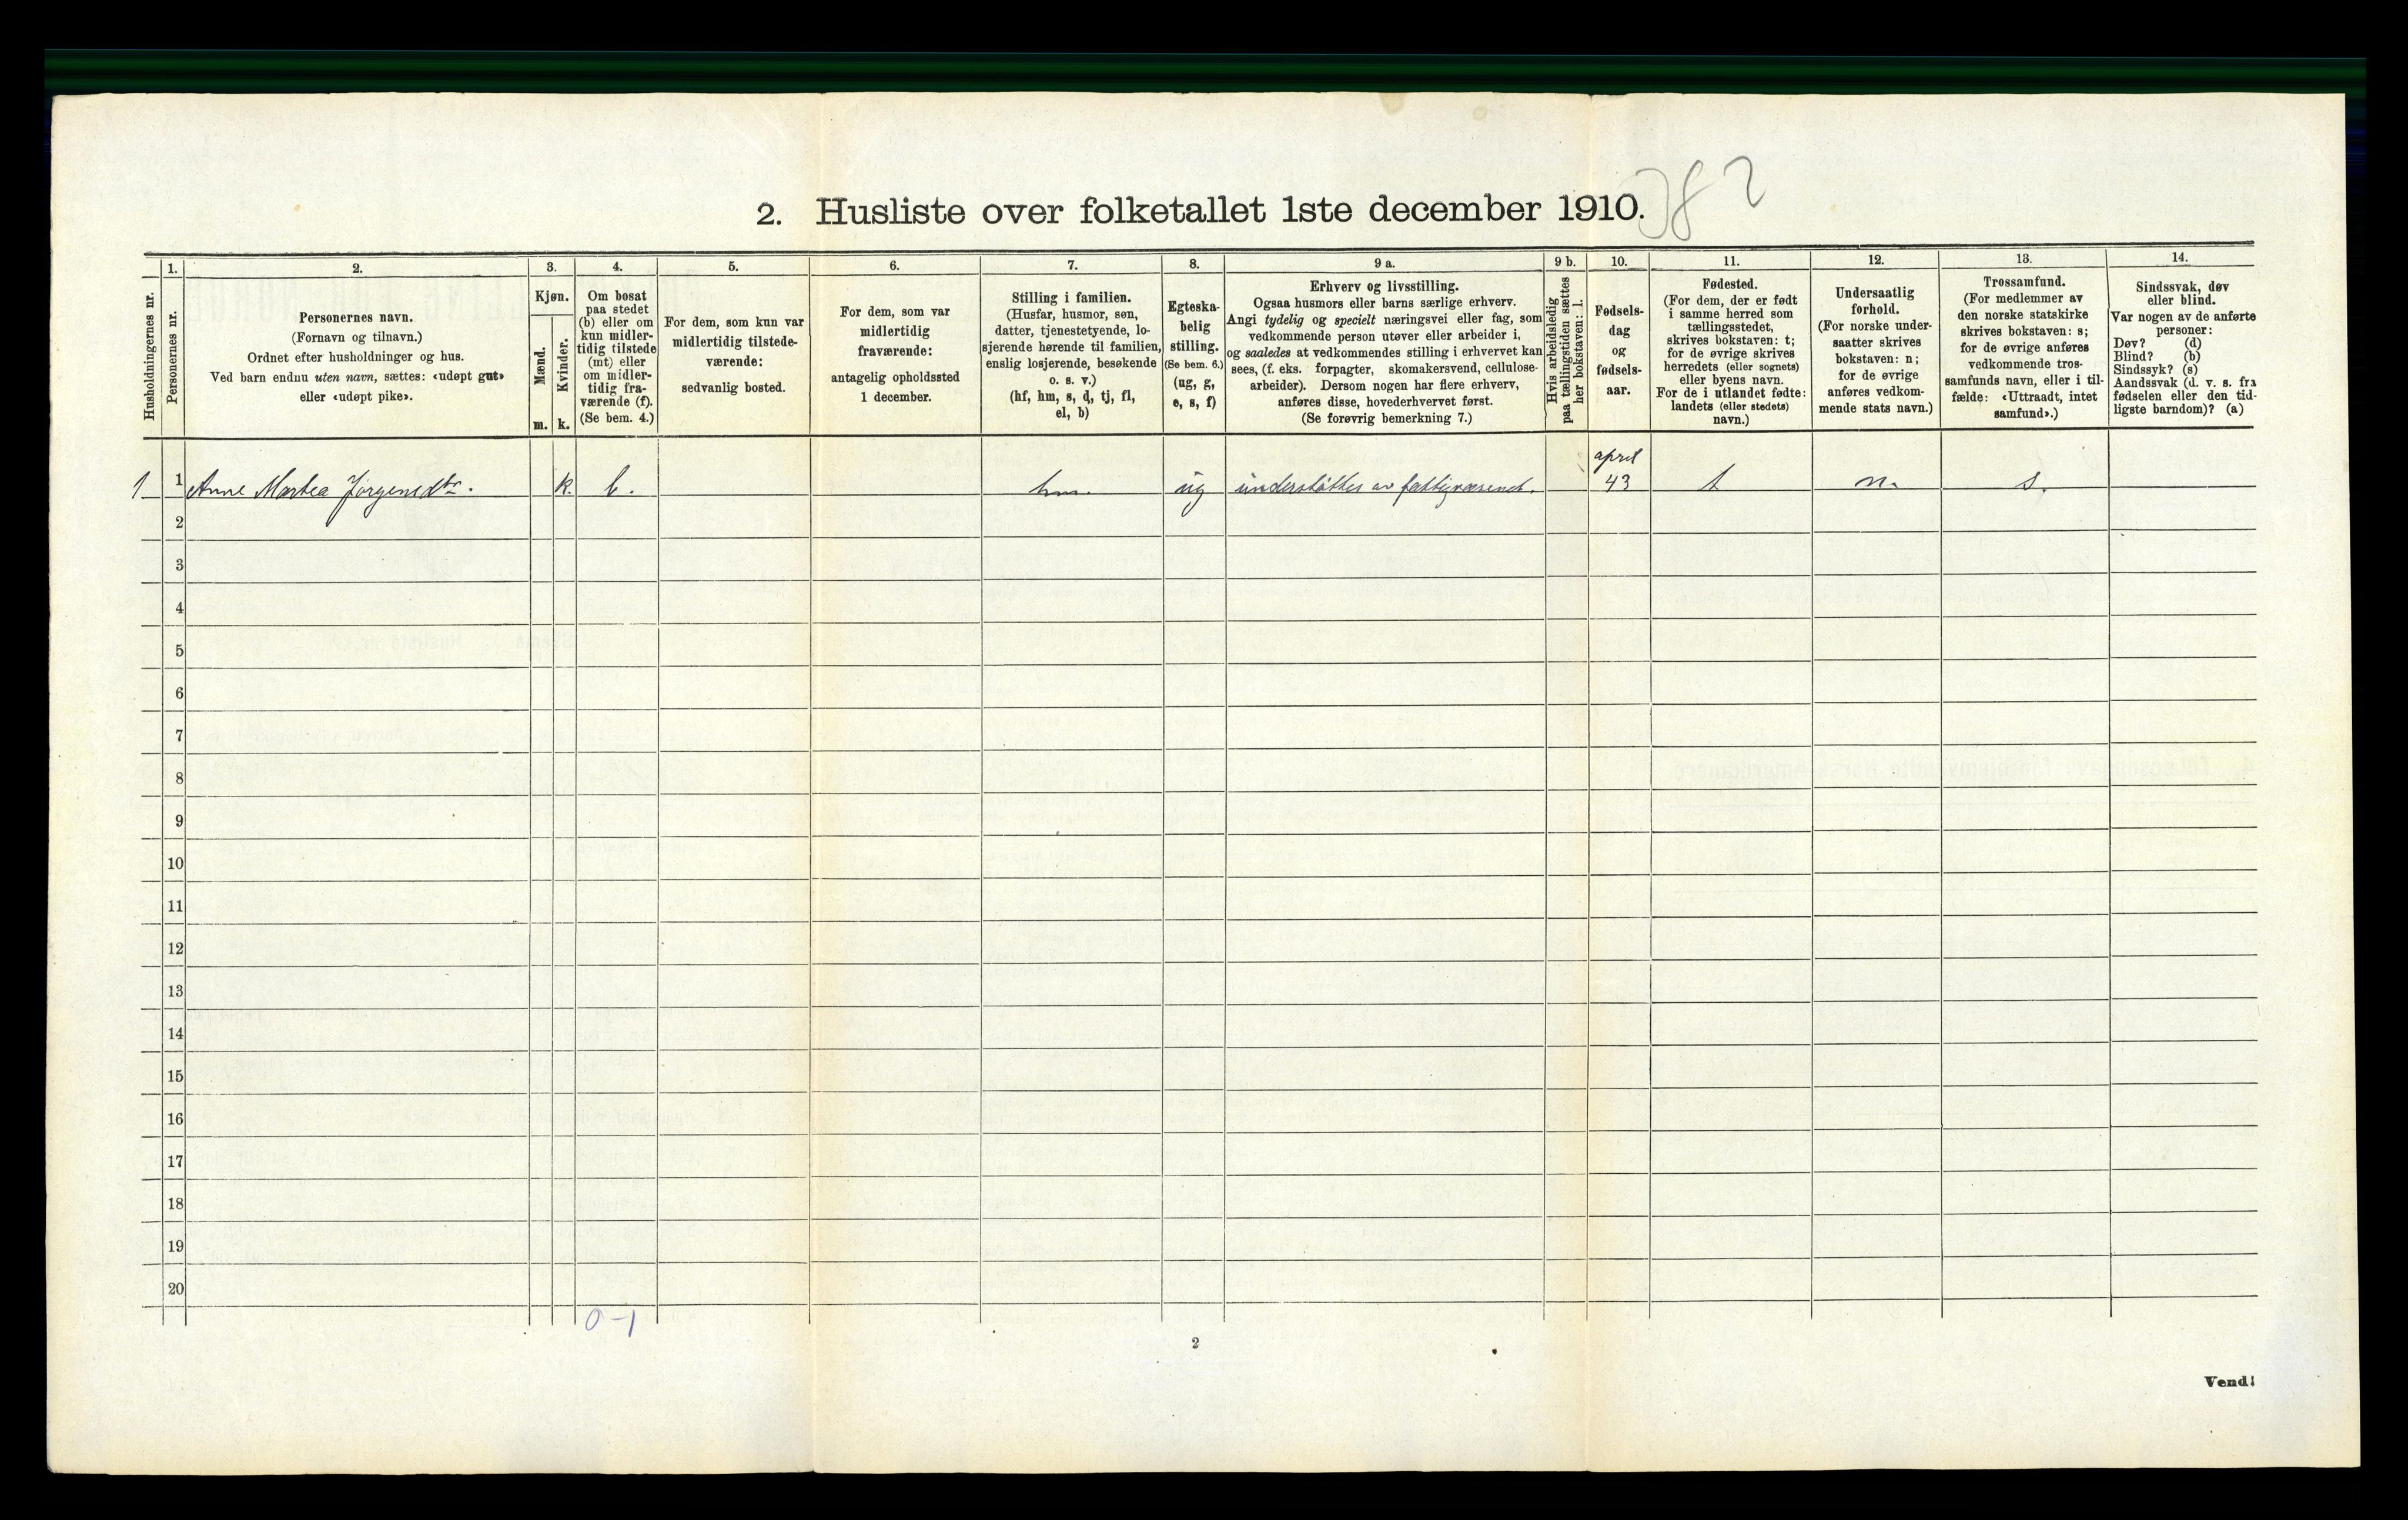 2. Husliste over folketallet 1ste december 1910.
382
Husholdningernes nr.
1.
Personernes nr.
2.
Personernes navn.
(Fornavn og tilnavn.)
Ordnet efter husholdninger og hus.
Ved barn endnu uten navn, sættes: «udøpt gut»
eller «udøpt pike».
3.
Kjøn.
Mænd.
Kvinder.
m. k.
4.
Om bosat
paa stedet
(b) eller om
kun midler-
tidig tilstede
(mt) eller
om midler-
tidig fra-
værende (f).
(Se bem. 4.)
5.
For dem, som kun var
midlertidig tilstede-
værende:
sedvanlig bosted.
6.
For dem, som var
midlertidig
fraværende:
antagelig opholdssted
1 december.
7.
Stilling i familien.
(Husfar, husmor, søn,
datter, tjenestetyende, lo-
sjerende hørende til familien,
enslig losjerende, besøkende
o. s. v.)
(hf, hm, s, d, tj, fl,
el, b)
8.
Egteska-
belig
stilling.
(Se bem. 6.)
(ug, g,
e, s, f)
9 a.
Erhverv og livsstilling.
Ogsaa husmors eller barns særlige erhverv.
Angi tydelig og specielt næringsvei eller fag, som
vedkommende person utøver eller arbeider i,
og saaledes at vedkommendes stilling i erhvervet kan
sees, (f. eks. forpagter, skomakersvend, cellulose-
arbeider). Dersom nogen har flere erhverv,
anføres disse, hovederhvervet først.
(Se forøvrig bemerkning 7.)
9 b.
Hvis arbeidsledig
paa tællingstiden sættes
her bokstaven: l.
10.
Fødsels-
dag
og
fødsels-
aar.
11.
Fødested.
(For dem, der er født
i samme herred som
tællingsstedet,
skrives bokstaven: t;
for de øvrige skrives
herredets (eller sognets)
eller byens navn.
For de i utlandet fødte:
landets (eller stedets)
navn.)
12.
Undersaatlig
forhold.
(For norske under-
saatter skrives
bokstaven: n;
for de øvrige
anføres vedkom-
mende stats navn.)
13.
Trossamfund.
(For medlemmer av
den norske statskirke
skrives bokstaven: s;
for de øvrige anføres
vedkommende tros-
samfunds navn, eller i til-
fælde: «Uttraadt, intet
samfund».)
14.
Sindssvak, døv
eller blind.
Var nogen av de anførte
personer:
Døv? (d)
Blind? (b)
Sindssyk? (s)
Aandssvak (d. v. s. fra
fødselen eller den tid-
ligste barndom)? (a)
april
1 1 Anne Martea Jørgensdtr. k. b. hm. ug understøttes av fattigvæsenet. 43 t n. s.
2
3
4
5
6
7
8
9
10
11
12
13
14
15
16
17
18
19
20
0-1
2
Vend!